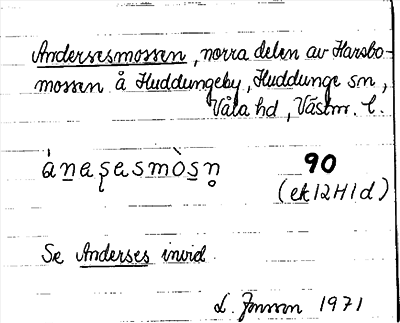 Andersesmossen, norra delen av Harsbo-
mossen å Huddungeby, Huddunge sn,
Våla hd, Västm. l.
ànasasmòsn 90
(ek 12H1d)
Se Anderses invid.
L. Jonsson 1971